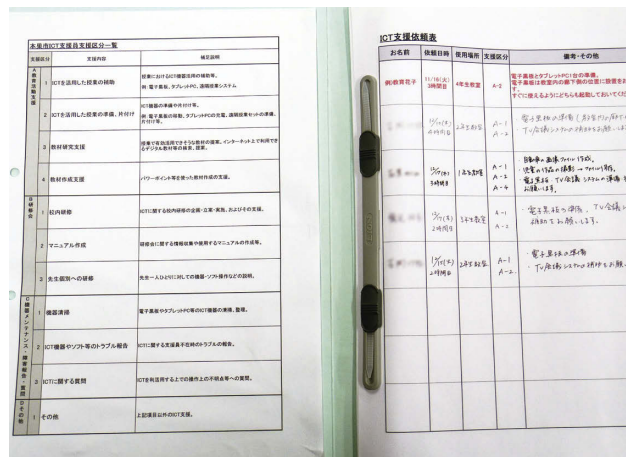 本巣市ICT支援員支援区分一覧
支援区分 支援内容 補足説明
A教育活動支援
1 ICTを活用した授業の補助 授業におけるICT機器活用の補助等。
例:電子黒板、タブレットPC、遠隔授業システム
2 ICTを活用した授業の準備、片付け ICT機器の準備や片付け等。
例:電子黒板の移動、タブレットPCの充電、遠隔授業セットの準備、
片付け等。
3 教材研究支援 授業で有効活用できそうな教材の提案。インターネット上で利用でき
るデジタル教材等の検索、提案。
4 教材作成支援 パワーポイント等を使った教材作成の支援。
B研修会
1 校内研修 ICTに関する校内研修の企画・立案・実施、およびその支援。
2 マニュアル作成 研修会に関する情報収集や使用するマニュアルの作成等。
3 先生個別への研修 先生一人ひとりに対しての機器・ソフト操作などの説明。
C機器メンテナンス・障害報告・質問
1 機器清掃 電子黒板やタブレットPC等のICT機器の清掃、整理。
2 ICT機器やソフト等のトラブル報告 ICTに関する支援員不在時のトラブルの報告。
3 ICTに関する質問 ICTを利活用する上での操作上の不明点等への質問。
Dその他
1 その他 上記項目以外のICT支援。
ICT支援依頼表
お名前 依頼日時 使用場所 支援区分 備考・その他
例)教育花子 11/16(火) 3時間目 4年生教室 A-2
電子黒板とタブレットPC1台の準備。
電子黒板は教室内の廊下側の位置に設置をお
す。
すぐに使えるようにどちらも起動しておいてくだ
4時間目 2年生教室 A-1
A-2
電子黒板の準備
TV会議システムの補助をお願いしま
3時間目 1年生教室 A-1
A-2
A-4
児童の作品の撮影
電子黒板 TV会議システムの準備
お願いします。
2時間目 3年生教室 A-1
A-2
・電子黒板の準備、TV会議
補助をお願いします。
2時間目 2年生教室 A-1
A-2
・電子黒板の準備
・TV会議システムの補助をお願